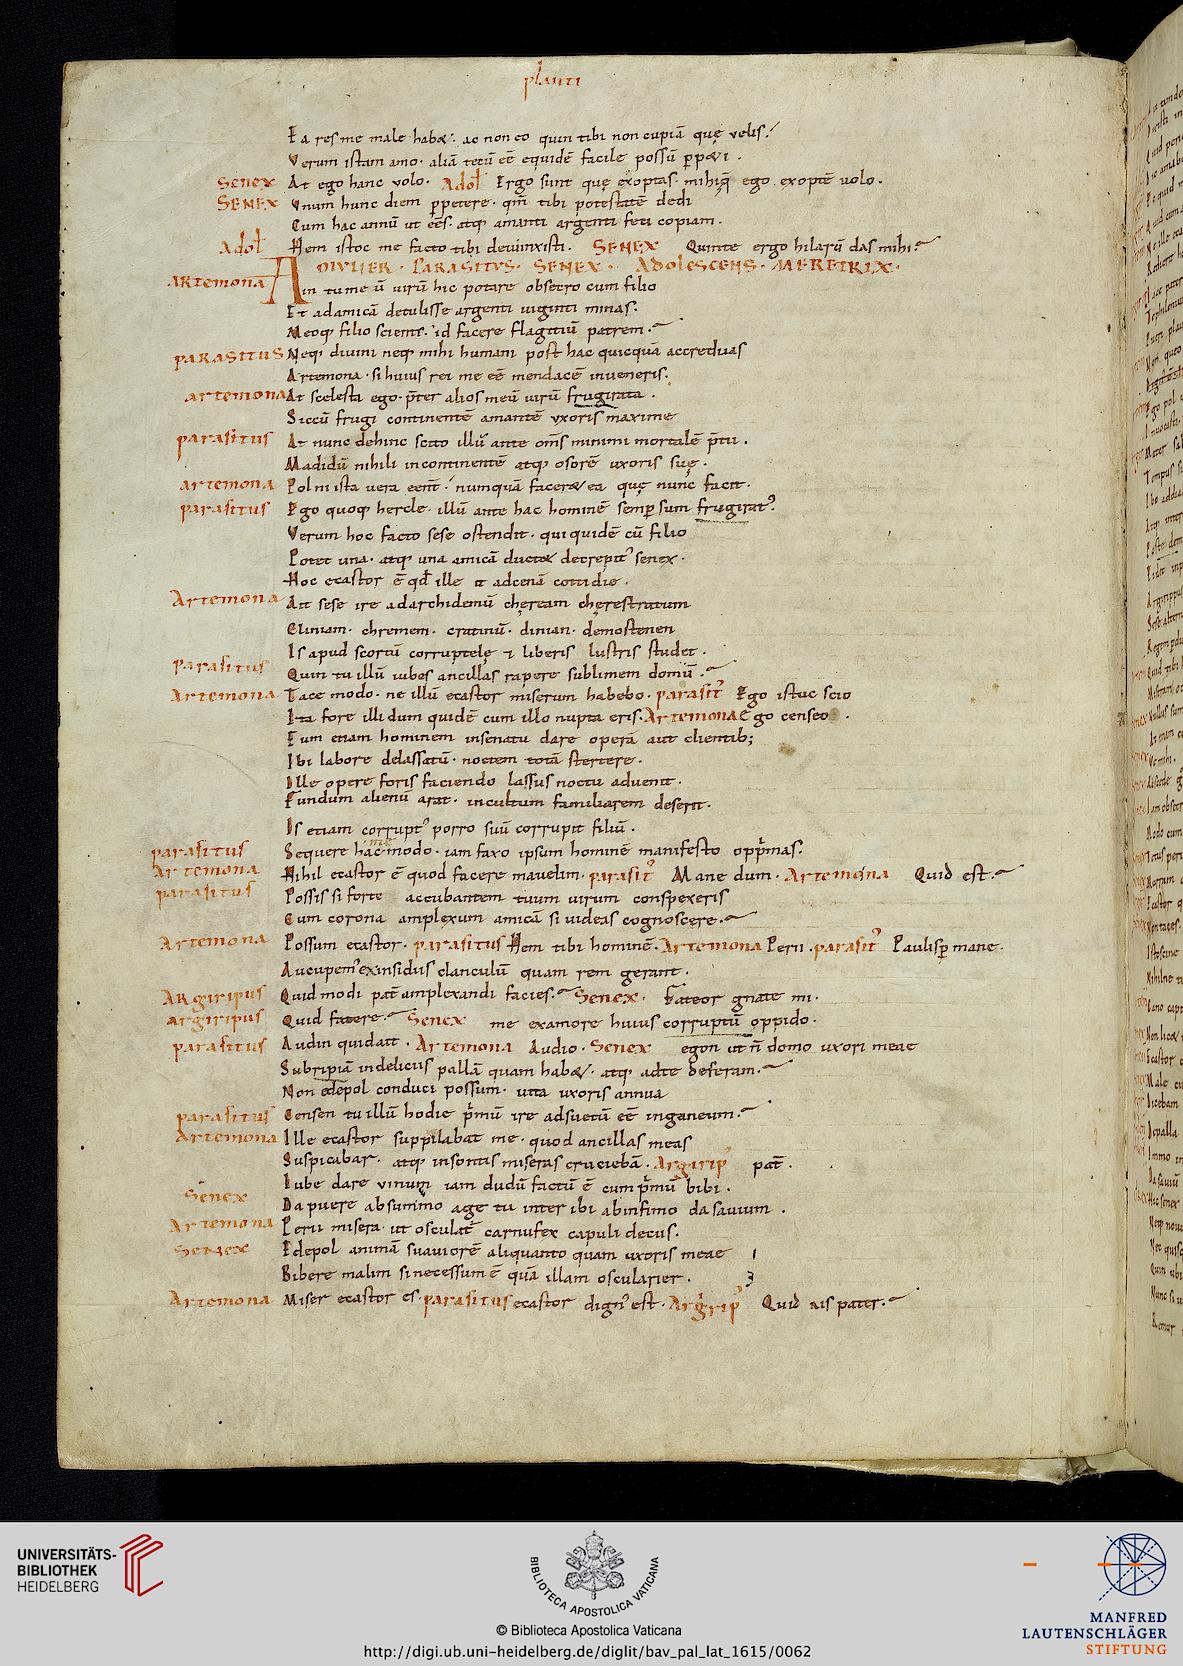 plauti
Ea res me male habæ·: ac non eo quin tibi non cupiā quę velis·
Verum istam amo· aliā tecū eē equidē facile possū ꝑpæi·
Senex At ego hanc volo· Adoł Ergo sunt quę exoptas· mihiq; ego exoptē volo·
SENEX Vnum hunc diem ꝑpetere· qm̄ tibi potestatē dedi
Cum hac annū ut eēs· atq; amanti argenti feci copiam·
Adoł Hem istoc me facto tibi devinxisti· SENEX Quinte ergo hilarū das mihi·
MVLIER· PARASITVS· SENEX· ADOLESCENS· MERETRIX·
ARTEMONA Ain tu meū virū hic potare obsecro cum filio
Et ad amicā detulisse argenti viginti minas·
Meoq; filio sciente· id facere flagitiū patrem·
PARASITUS Neq; divini neq; mihi humani post hac quicquā accreduas
Artemona· si huius rei me eē mendacē inveneris·
artemona At scelesta ego· p̄ter alios meū virū frugirata·
Siccū frugi continentē amantē vxoris maxime
parasitus At nunc dehinc scito illū ante om̄s minimi mortalē p̄tii·
Madidū nihili incontinentē atq; osorē vxoris suę·
artemona Pol ni ista vera eent· numquā faceræ ea quę nunc facit·
parasitus Ego quoq; hercle· illū ante hac hominē semꝑ sum frugirat'·
Verum hoc facto sese ostendit· qui quidē cū filio
Potet una· atq; una amicā ductæ decrepit' senex·
Hoc ecastor ē qđ ille it ad cenā cottidie·
Artemona Ait sese ire ad archidemū chęream chęrestratum
Cliniam· chremem· cratinū· dinian· demostenen
Is apud scortū corruptelę ⁊ liberis lustris studet·
parasitus Quin tu illū iubes ancillas rapere sublimem domū·
Artemona Tace modo· ne illū ecastor miserum habebo· parasit' Ego istuc scio
Ita fore illi dum quidē cum illo nupta eris· Artemona Ego censeo·
Eum etiam hominem in senatu dare operā aut clientib;
Ibi labore delassatū· noctem totā stertere·
Ille opere foris faciendo lassus noctu advenit·
Fundum alienū arat· incultum familiarem deserit·
Is etiam corrupt' porro suū corrupit filiū·
parasitus Sequere hac me modo· iam faxo ipsum hominē manifesto opp̄mas·
Artemona Nihil ecastor ē quod facere mavelim· parasit' Mane dum· Artemona Quid est·
parasitus Possis si forte accubantem tuum virum conspexeris
Cum corona amplexum amicā si videas cognoscere·
Artemona Possum ecastor· parasitus Hem tibi hominē· Artemona Perii· parasit' Paulisꝑ mane·
Aucupem' ex insidiis clanculū quam rem gerant·
ARgiripus Quid modi pat̄ amplexandi facies· Senex· Fateor gnate mi·
argiripus Quid fatere· Senex me ex amore huius corruptū oppido·
parasitus Audin quid ait· Artemona Audio· Senex egon ut ñ domo uxori meae
Subripiā in deliciis pallā quam habæ· atq; ad te deferam·
Non edepol conduci possum· vita vxoris annua
parasitus Censen tu illū hodie p̄mū ire adsuetū eē in ganeum·
Artemona Ille ecastor suppilabat me· quod ancillas meas
Suspicabar· atq; insontis miseras cruciebā· Argirip' pat̄·
Iube dare vinum iam dudū factū ē cum p̄mū bibi·
Senex Da puere ab summo age tu inter ibi ab infimo da savium·
Artemona Perii misera· ut osculat̄ carnufex capuli decus·
Senex Edepol animā suaviorē aliquanto quam vxoris meae
Bibere malim si necessum ē quā illam oscularier·
Artemona Miser ecastor es· parasitus ecastor dign' est· Argirip' Quid ais pater·
UNIVERSITÄTS-
BIBLIOTHEK
HEIDELBERG
BIBLIOTECA APOSTOLICA VATICANA
© Biblioteca Apostolica Vaticana
http://digi.ub.uni-heidelberg.de/diglit/bav_pal_lat_1615/0062
MANFRED
LAUTENSCHLÄGER
STIFTUNG